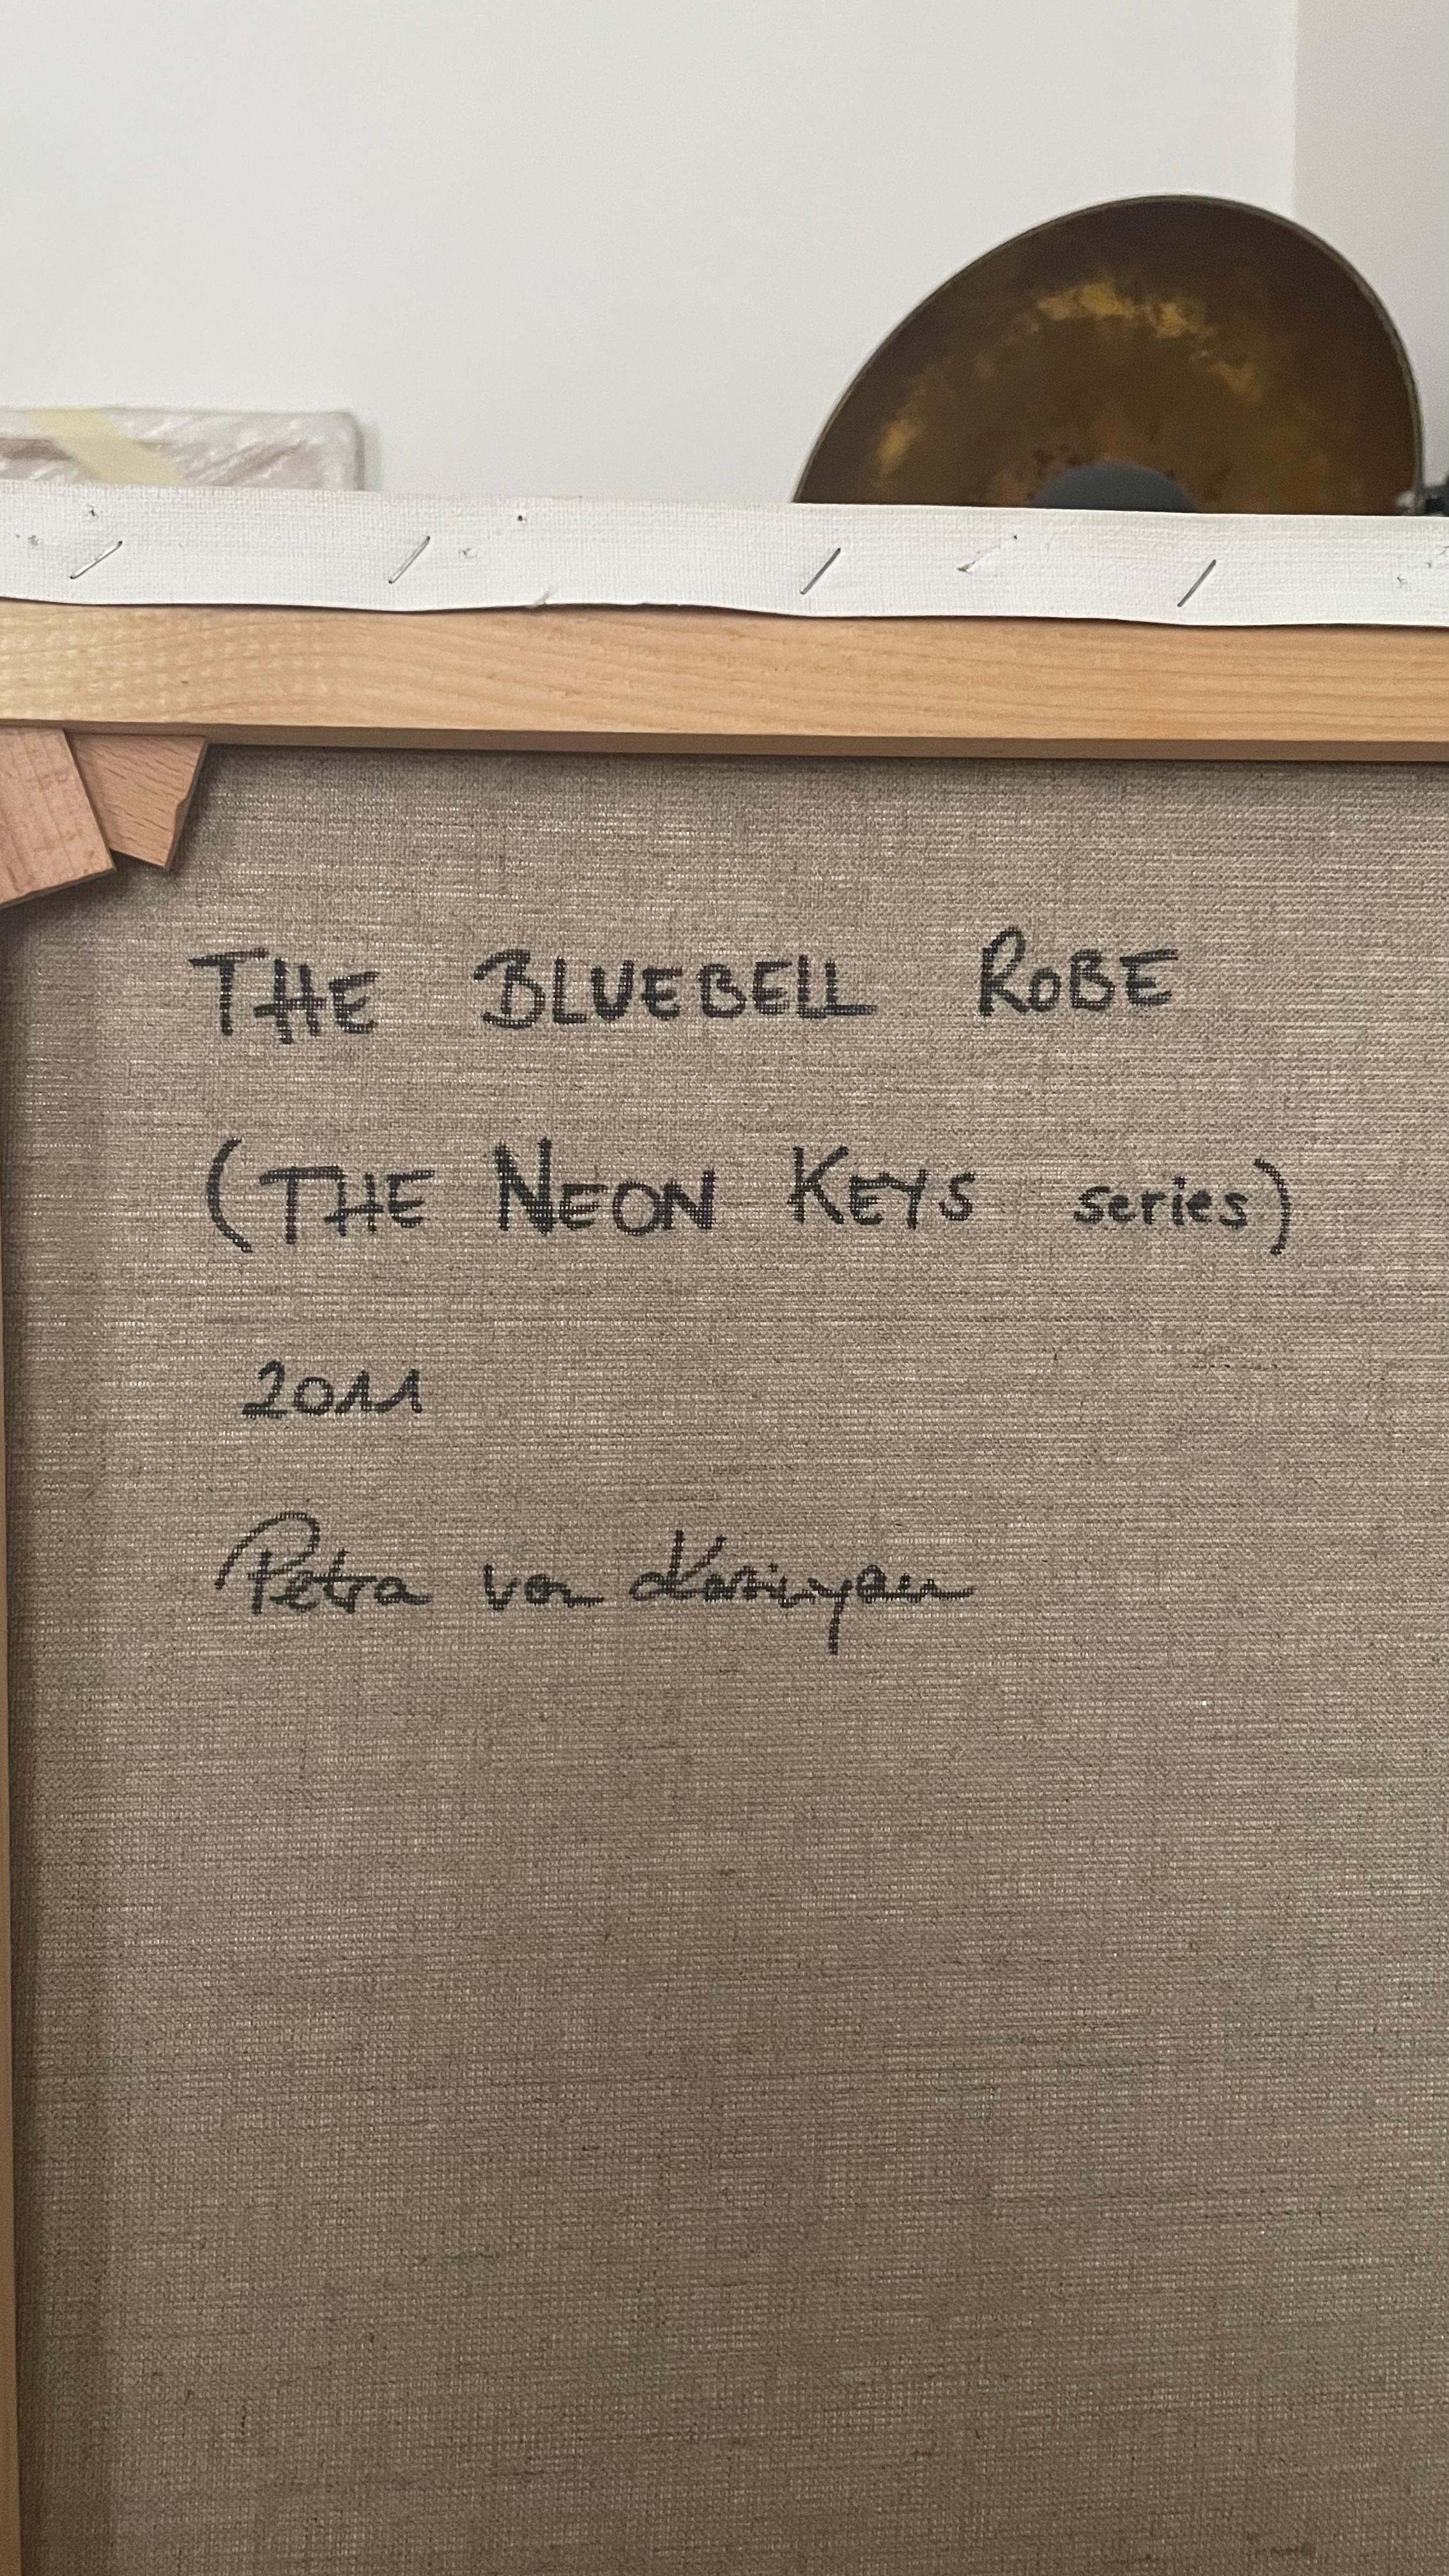 THE BLUEBELL ROBE
(THE NEON KEYS series)
2011
Petra von Kazinyan